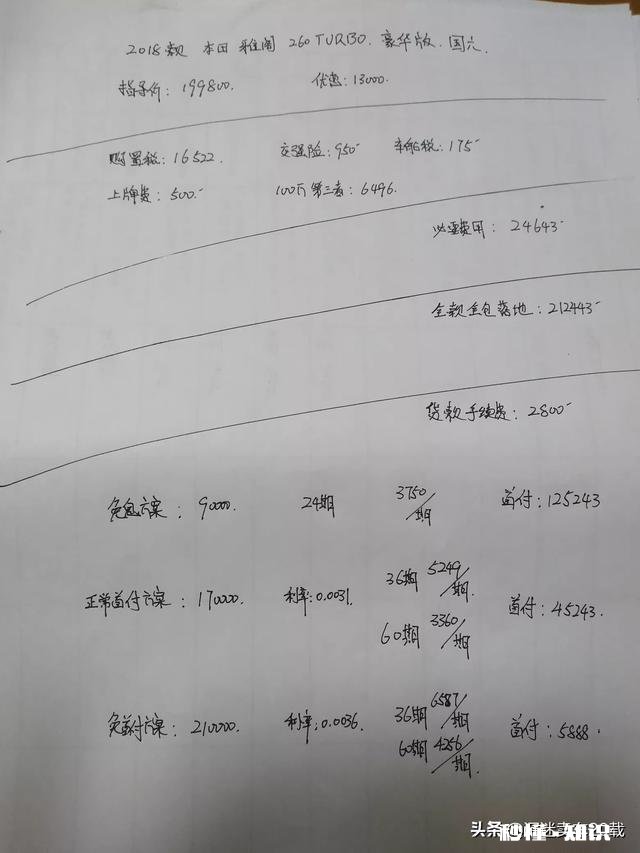 2018款 本田 雅阁 260TURBO. 豪华版. 国六.
指导价: 199800. 优惠: 13000.
购置税: 16522. 交强险: 950 车船税: 175
上牌费: 500. 100万第三者: 6496.
必要费用: 24643
全款全包落地: 212443
贷款手续费: 2800
免息方案: 90000. 24期 3750/期 首付: 125243
正常首付方案: 170000. 利率: 0.0031. 36期 5249/期. 首付: 45243.
60期 3360/期
免首付方案: 210000. 利率: 0.0036. 36期 6587/期 首付: 5888.
60期 4256/期.
头条
秒懂·知识